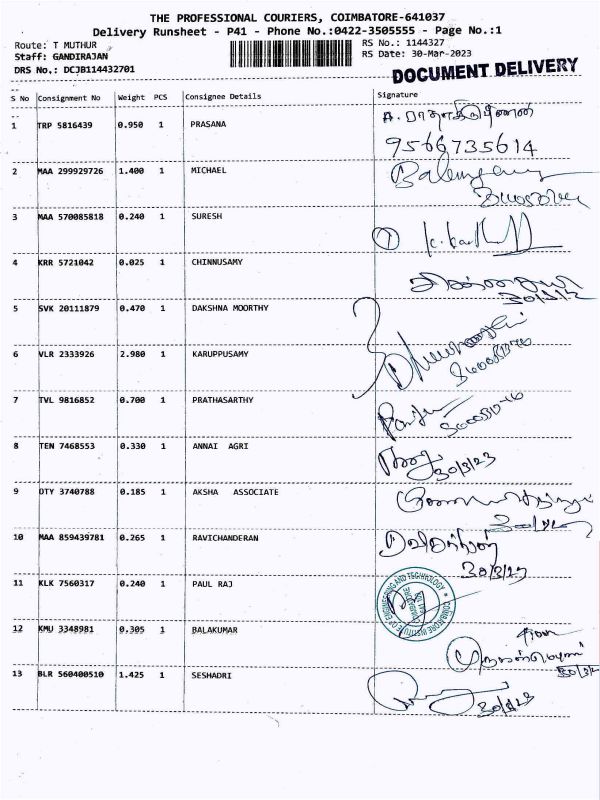 THE PROFESSIONAL COURIERS, COIMBATORE-641037
Delivery Runsheet - P41 - Phone No.:0422-3505555 - Page No.:1
Route: T MUTHUR
RS No.: 1144327
Staff: GANDIRAJAN
RS Date: 30-Mar-2023
DRS No.: DCJB114432701
DOCUMENT DELIVERY
S No Consignment No Weight PCS Consignee Details Signature
1 TRP 5816439 0.950 1 PRASANA
9566735614
2 MAA 299929726 1.400 1 MICHAEL
3 MAA 570085818 0.240 1 SURESH
4 KRR 5721042 0.025 1 CHINNUSAMY
5 SVK 20111879 0.470 1 DAKSHNA MOORTHY
6 VLR 2333926 2.980 1 KARUPPUSAMY
7 TVL 9816852 0.700 1 PRATHASARTHY
8 TEN 7468553 0.330 1 ANNAI AGRI
30/3/23
9 OTY 3740788 0.185 1 AKSHA ASSOCIATE
10 MAA 859439781 0.265 1 RAVICHANDERAN
ரவிசந்திரன்
30/3/23
11 KLK 7560317 0.240 1 PAUL RAJ
COIMBATORE INSTITUTE OF ENGINEERING AND TECHNOLOGY
12 KMU 3348981 0.305 1 BALAKUMAR
13 BLR 560400510 1.425 1 SESHADRI
30/3/23